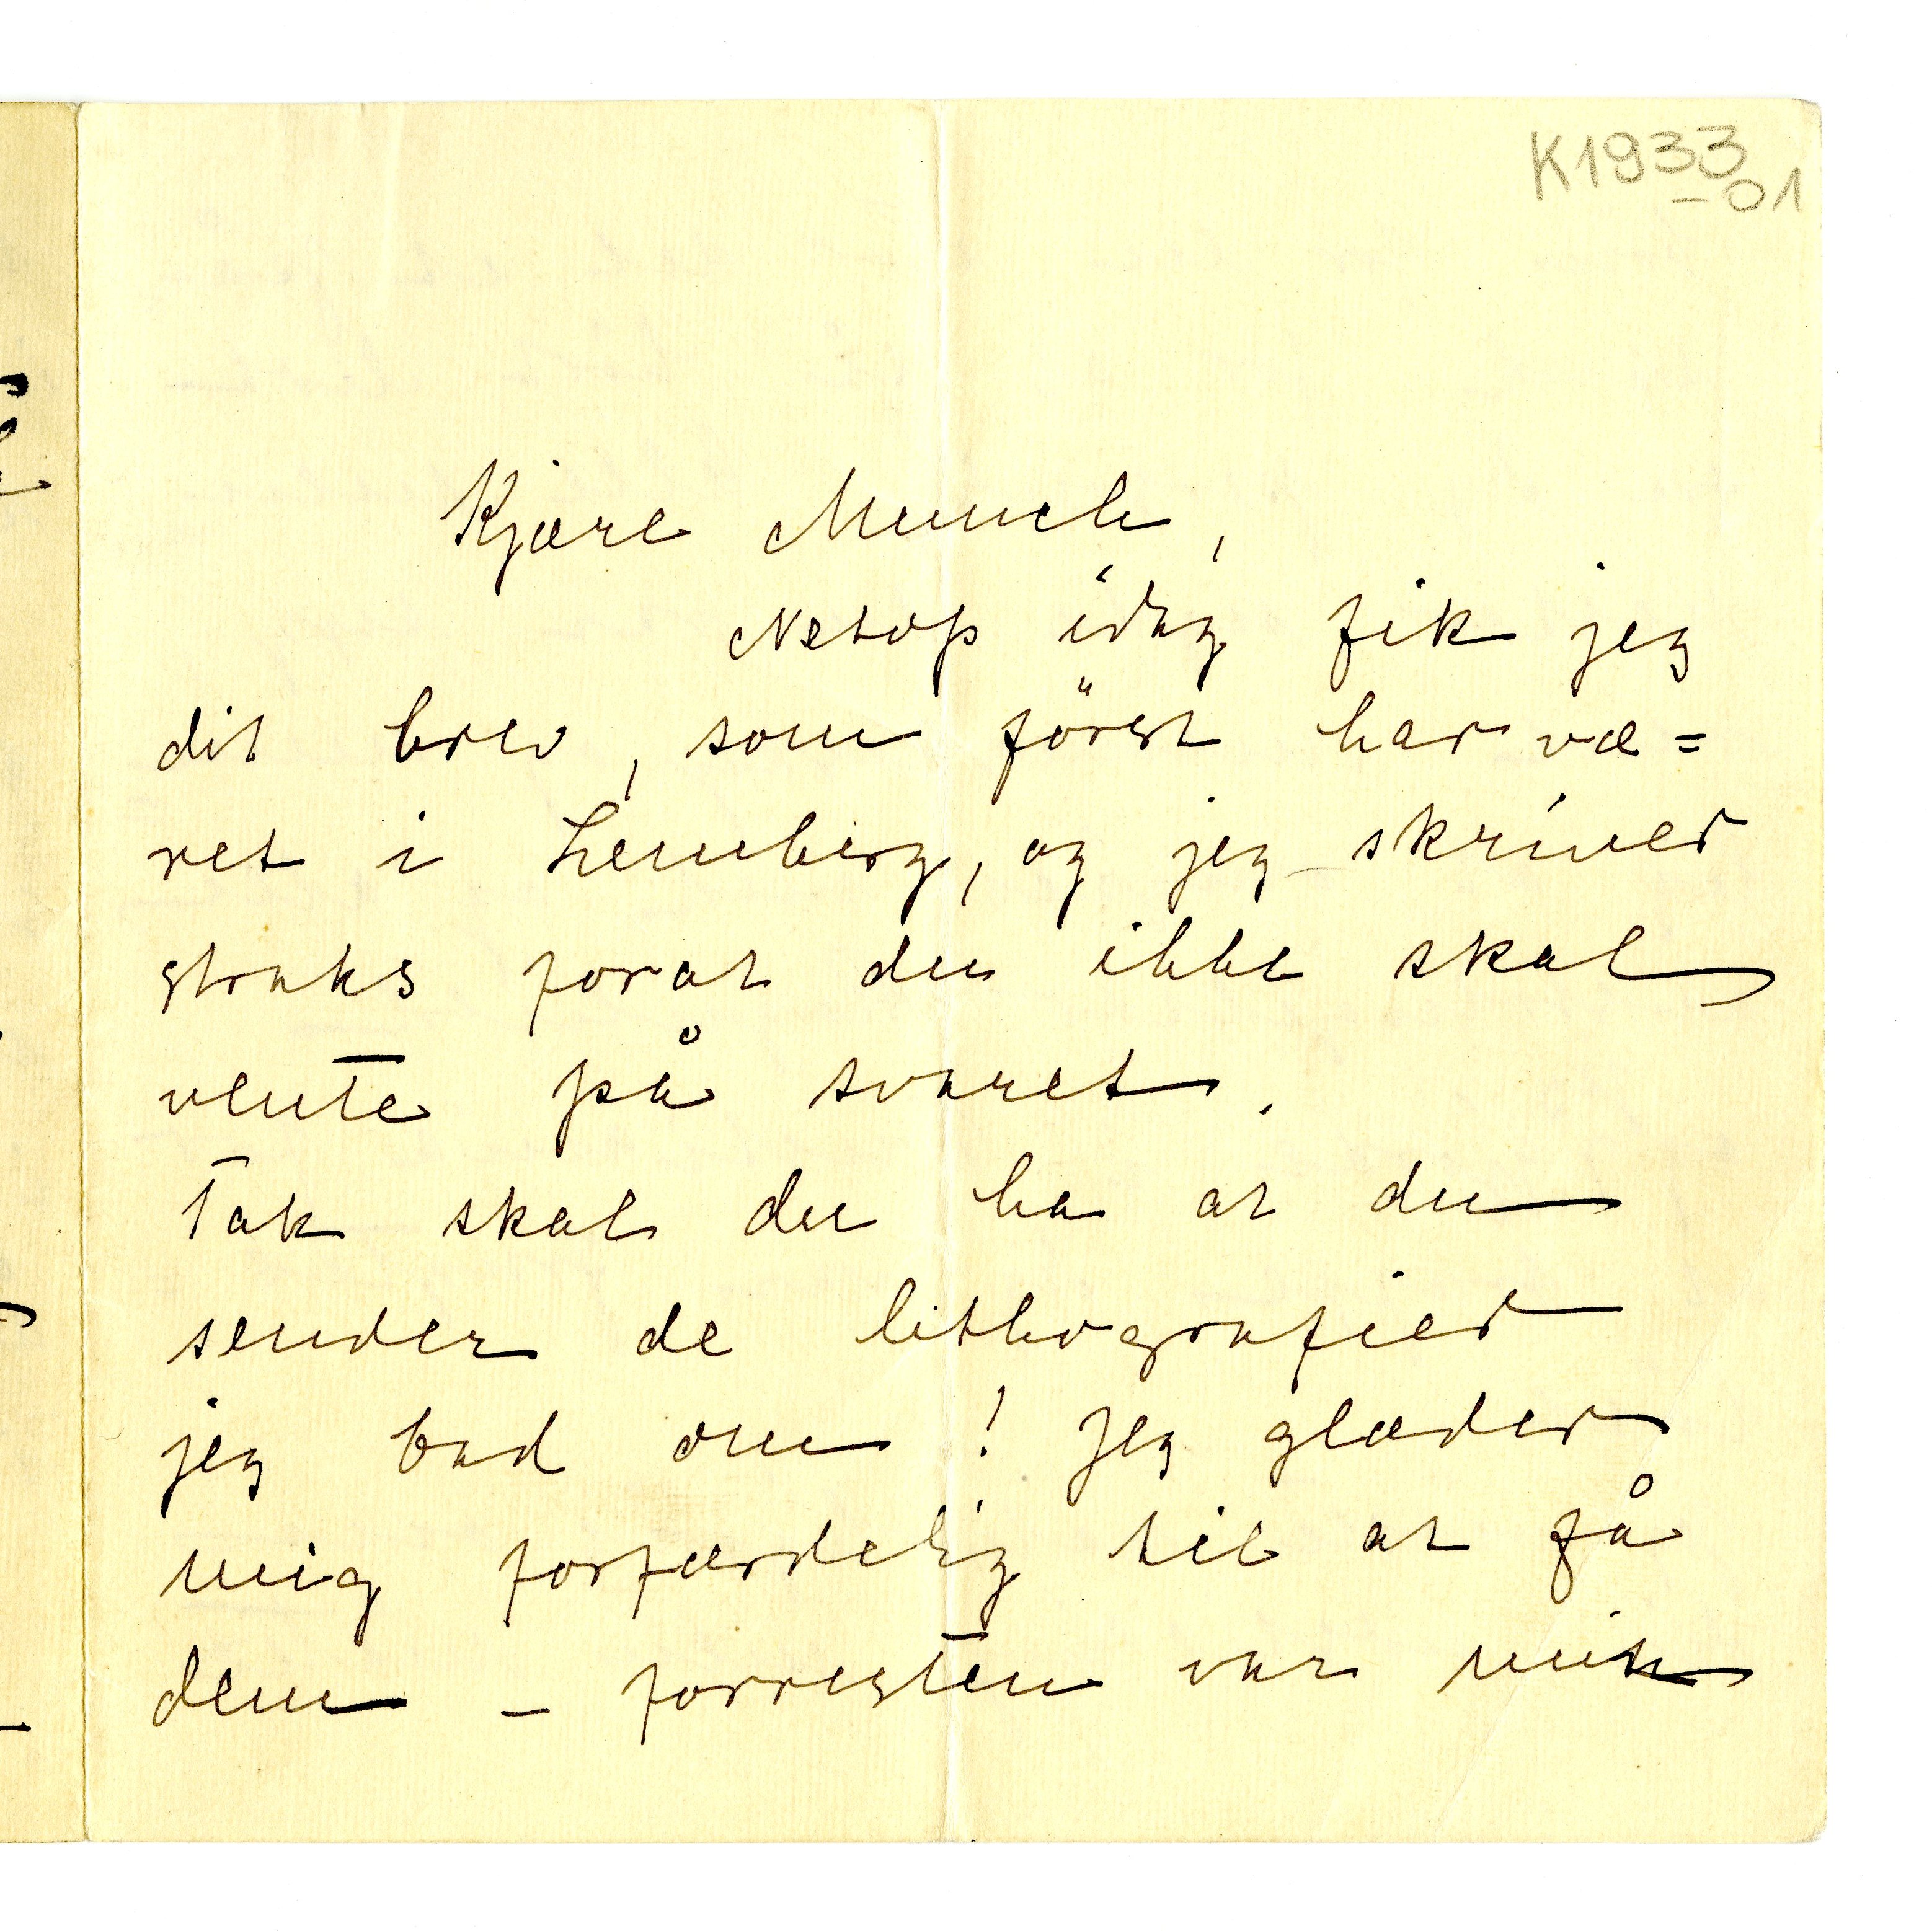 K1933
-01
Kjære Munch,
Netop idag fik jeg
dit brev, som först har væ=
ret i Lemberg, og jeg skriver
straks forat du ikke skal
vente på svaret.
Tak skal du ha at du
sender de lithografier
jeg bad om! Jeg glæder
mig forfærdelig til at få
dem – forresten var min